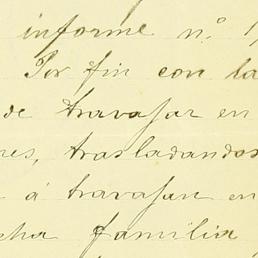 informe n.º 1
Por fin con la
de travajar en
res, trasladandos
á travajan en
cha familia